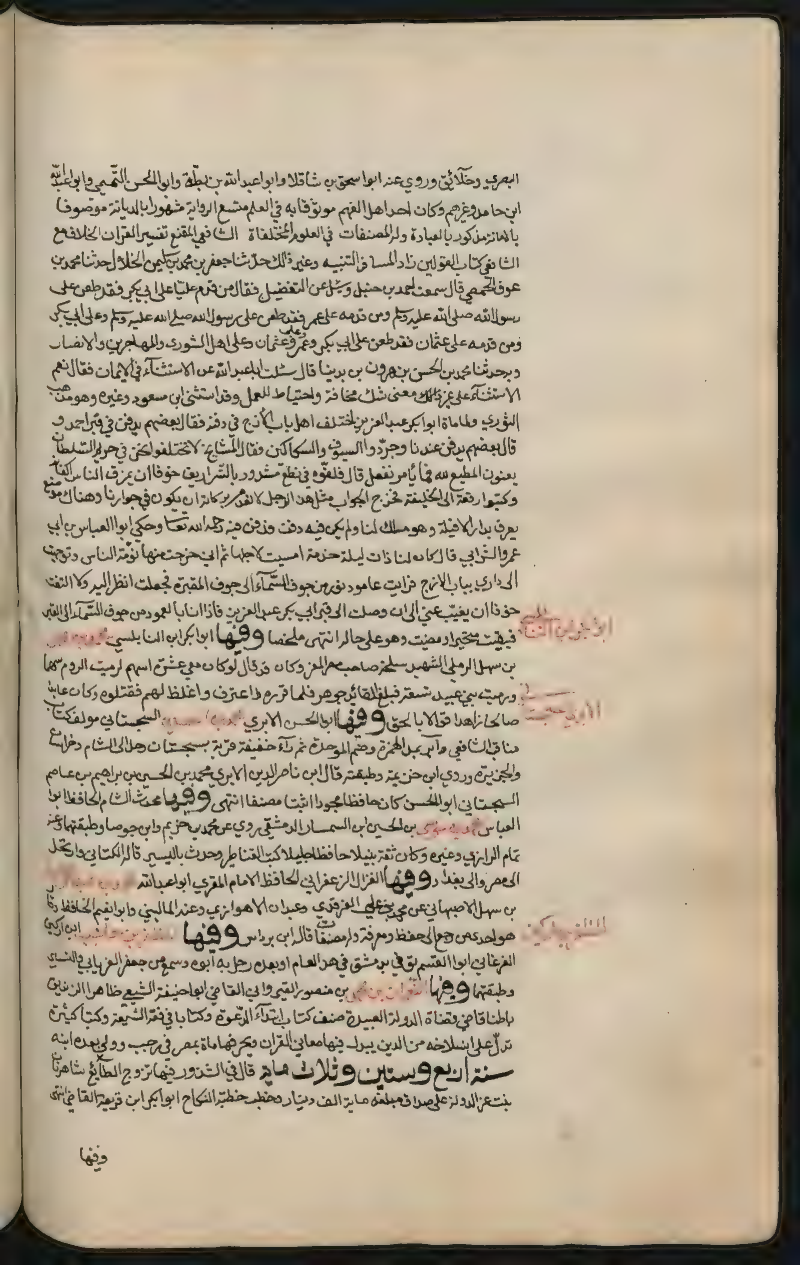 البصري وخلائق وروي عنه ابوا اسحق بن شاقلا وابوا عبد الله بن بطة وابوا الحسن التميمي وابوا عبد الله
ابن حامد وغيرهم وكان احد اهل الفهم موثوقا به في العلم متسع الرواية مشهورا بالديانة موصوفا
بالامانة مذكور بالعبادة وله المصنفات في العلوم المختلفاة الشافي المقنع تفسير القران الخلاف مع
الشافعي كتاب القولين زاد المسافر التنبيه وغير ذلك حدثنا جعفر بن محمد بن سليمن الخلال حدثنا محمد بن
عوف الحمصي قال سمعت احمد بن حنبل وسئل عن التفضيل فقال من قدم عليا على ابي بكر فقد طعن على
رسول الله صلى الله عليه وسلم ومن قدمه على عمر فقد طعن على رسول الله صلى الله عليه وسلم وعلى ابي بكر
ومن قدمه على عثمان فقد طعن على ابي بكر وعمر وعلى عثمان وعلى اهل الشوري والمهاجرين والانصار
وبه حدثنا محمد بن الحسن بن هرون بن بدينا قال سئلت ابا عبد الله عن الاستثناء في الايمان فقال نعم
الاستثناء على غير معنى شك مخافة واحتياط للعمل وقد استثنى ابن مسعود وغيره وهو مذهب
الثوري ولما ماة ابوا بكر عبد العزيز اختلف اهل باب الازج في دفنه فقال بعضهم يدفن في قبر احمد و
قال بعضهم يدفن عندنا وجردوا السيوف والسكاكين وقال المشايخ لا تختلفوا نحن في حريم السلطان
يعنون المطيع لله فما يأمر نفعل قال فلفوه في نطع مشدود بالشراريف خوفا ان يمزق الناس اكفانه
وكتبوا رقعة الى الخليفة فخرج الجواب مثل هذا الرجل لا نعدم بركاته ان يكون في جوارنا وهناك موضع
يعرف بدار الافيلة وهو ملك لنا ولم يكن فيه دفن فدفن فيه رحمه الله تعا وحكى ابوا العباس بن ابي
عمرو الشرابي قال كان لنا ذات ليلة خدمة امسيت لاجلها ثم اني خرجت منها نومة الناس وتوجهت
الى داري بباب الازج فرايت عامود نور من جوف السماء الى جوف المقبرة فجعلت انظر اليه ولا التفت
خوفا ان يغيب عني الى ان وصلت الى قبر ابي بكر عبد العزيز فاذا انا بالعمود من جوف السماء الى القبر
فبقيت متحيرا ومضيت وهو على حاله انتهى ملخصا وفيها ابوا بكر ابن النابلسي محمد بن احمد
بن سهل الرملي الشهيد سلخه صاحب مصر المعز وكان قد قال لو كان معي عشرة اسهم لرميت الروم سهما
ورميت بني عبيد تسعة فبلغ القائد جوهر فلما قرره اعترف واغلظ لهم فقتلوه وكان عابدا
صالحا زاهدا قوالا بالحق وفيها ابوا الحسن الابري محمد بن الحسين السجستاني مولف كتاب
مناقب الشافعي وآبر بمد الهمزة وضم الموحدة ثم راء خفيفة قرية بسجستان رحل الى الشام وخراسان
والجزيرة وروي ابن خزيمة وطبقته قال ابن ناصر الدين الابري محمد بن الحسين بن براهيم بن عاصم
السجستاني ابو الحسن كان حافظا مجودا ثبتا مصنفا انتهى وفيها محدث الشام الحافظ ابوا
العباس محمد بن موسى بن الحسين ابن السمسار الدمشقي روي عن محمد بن خزيم وابن جوصا وطبقتهما وعنه
تمام الرازي وغيره وكان ثقة نبيلا حافظا جليلا كتب القناطير وحدث باليسير قاله الكتاني وارتحل
الى مصر والى بغداد وفيها الغزال الزعفراني الحافظ الامام المقري ابوا عبد الله
بن سهل الاصبهاني عن محمد بن علي الفرقدي وعبدان الاهوازي وعنه الماليني وابوا نعيم الحافظ وقال
هو احد من رجع الى حفظ ومعرفة وله مصنفات قاله ابن برداس وفيها
الفرغاني ابوا القسم توفي بدمشق في هذا العام او بعده رحل به ابوه وسمع من جعفر الفريابي والنسائي
وطبقتهما وفيها النعمان بن محمد بن منصور القيرواني القاضي ابوا حنيفة الشيعي ظاهرا الزنديق
باطنا قاضي قضاة الدولة العبيدية صنف كتاب ابتداء الدعوة وكتابا في فقه الشيعة وكتبا كثيرة
تدل على انسلاخه من الدين يبدل فيها معاني القران ويحرفها ماة بمصر في رجب وولي بعده ابنه
سنة اربع وستين وثلاث ماية قال في الشذور فيها تزوج الطائع شاهزنان
بنت عز الدولة على صداق مبلغه ماية الف دينار وخطب خطبة النكاح ابوا بكر ابن قريعة القاضي انتهى
وفيها